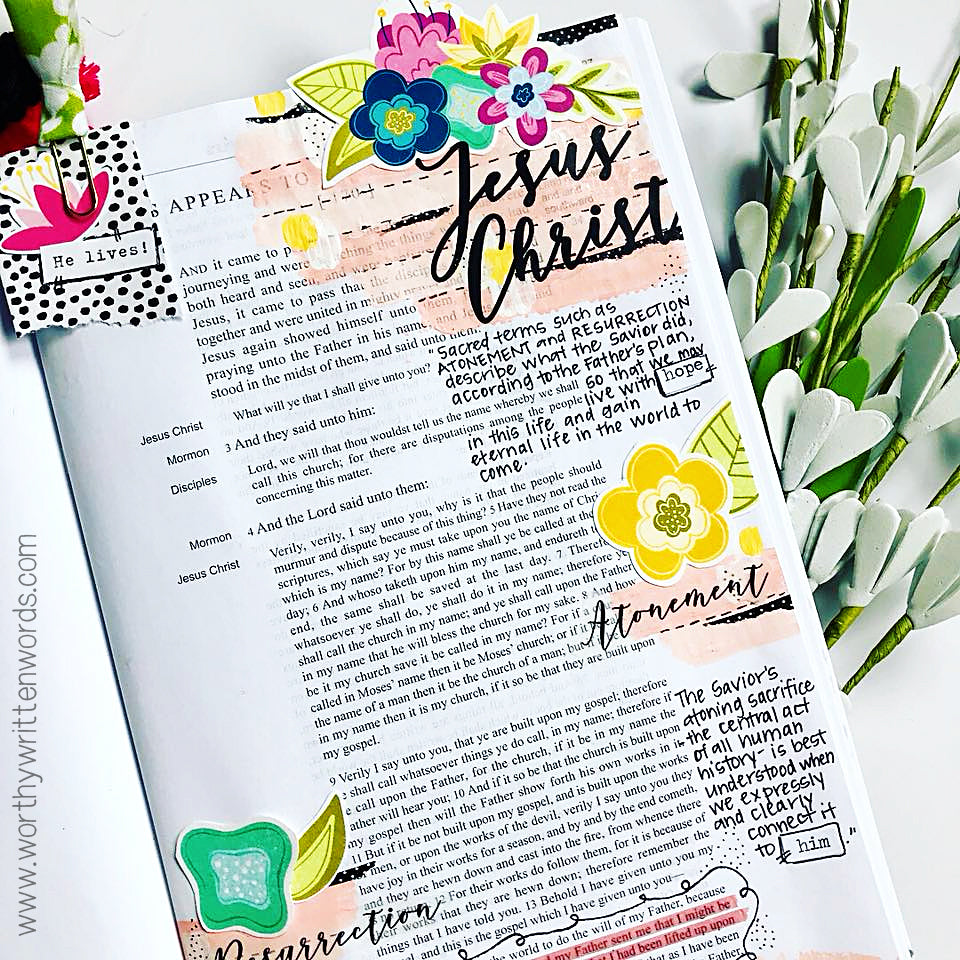 www.worthywrittenwords.com
He lives!
APPEARS TO
Jesus
Christ
AND it came to
journeying and were
both heard and seen,
Jesus, it came to pass that the
together and were united in mighty
Jesus again showed himself unto them,
praying unto the Father in his name; and Jesus
stood in the midst of them, and said unto
What will ye that I shall give unto you?
"Sacred terms such as
ATONEMENT and RESURRECTION
describe what the Savior did,
according to the Father's plan,
so that we may
live with hope
in this life and gain
eternal life in the world to
come.
Jesus Christ
Mormon
Disciples
Mormon
Jesus Christ
3 And they said unto him:
Lord, we will that thou wouldst tell us the name whereby we shall
call this church; for there are disputations among the people
concerning this matter.
4 And the Lord said unto them:
Verily, verily, I say unto you, why is it that the people should
murmur and dispute because of this thing? 5 Have they not read the
scriptures, which say ye must take upon you the name of
which is my name? For by this name shall ye be called at the
day; 6 And whoso taketh upon him my name, and endureth
end, the same shall be saved at the last day. 7
whatsoever ye shall do, ye shall do it in my name; therefore ye
shall call the church in my name; and ye shall call upon the Father
in my name that he will bless the church for my sake. 8 And how
be it my church save it be called in my name? For if a
called in Moses' name then it be Moses' church; or if it
the name of a man then it be the church of a man; but
in my name then it is my church, if it so be that they are built upon
my gospel.
Atonement
The Savior's
atoning sacrifice
- the central act
of all human
history - is best
understood when
we expressly
and clearly
connect it
to him."
9 Verily I say unto you, that ye are built upon my gospel; therefore
shall call whatsoever things ye do call, in my name; therefore if
call upon the Father, for the church, if it be in my name the
Father will hear you; 10 And if it so be that the church is built upon
my gospel then will the Father show forth his own works in
11 But if it be not built upon my gospel, and is built upon the works
men, or upon the works of the devil, verily I say unto you they
have joy in their works for a season, and by and by the end cometh,
and they are hewn down and cast into the fire, from whence there
For their works do follow them, for it is because of
works that they are hewn down; therefore remember the
things that I have told you. 13 Behold I have given unto you my
and this is the gospel which I have given unto you—
the world to do the will of my Father, because
my Father sent me that I might be
I had been lifted up upon
that as I have been
Resurrection